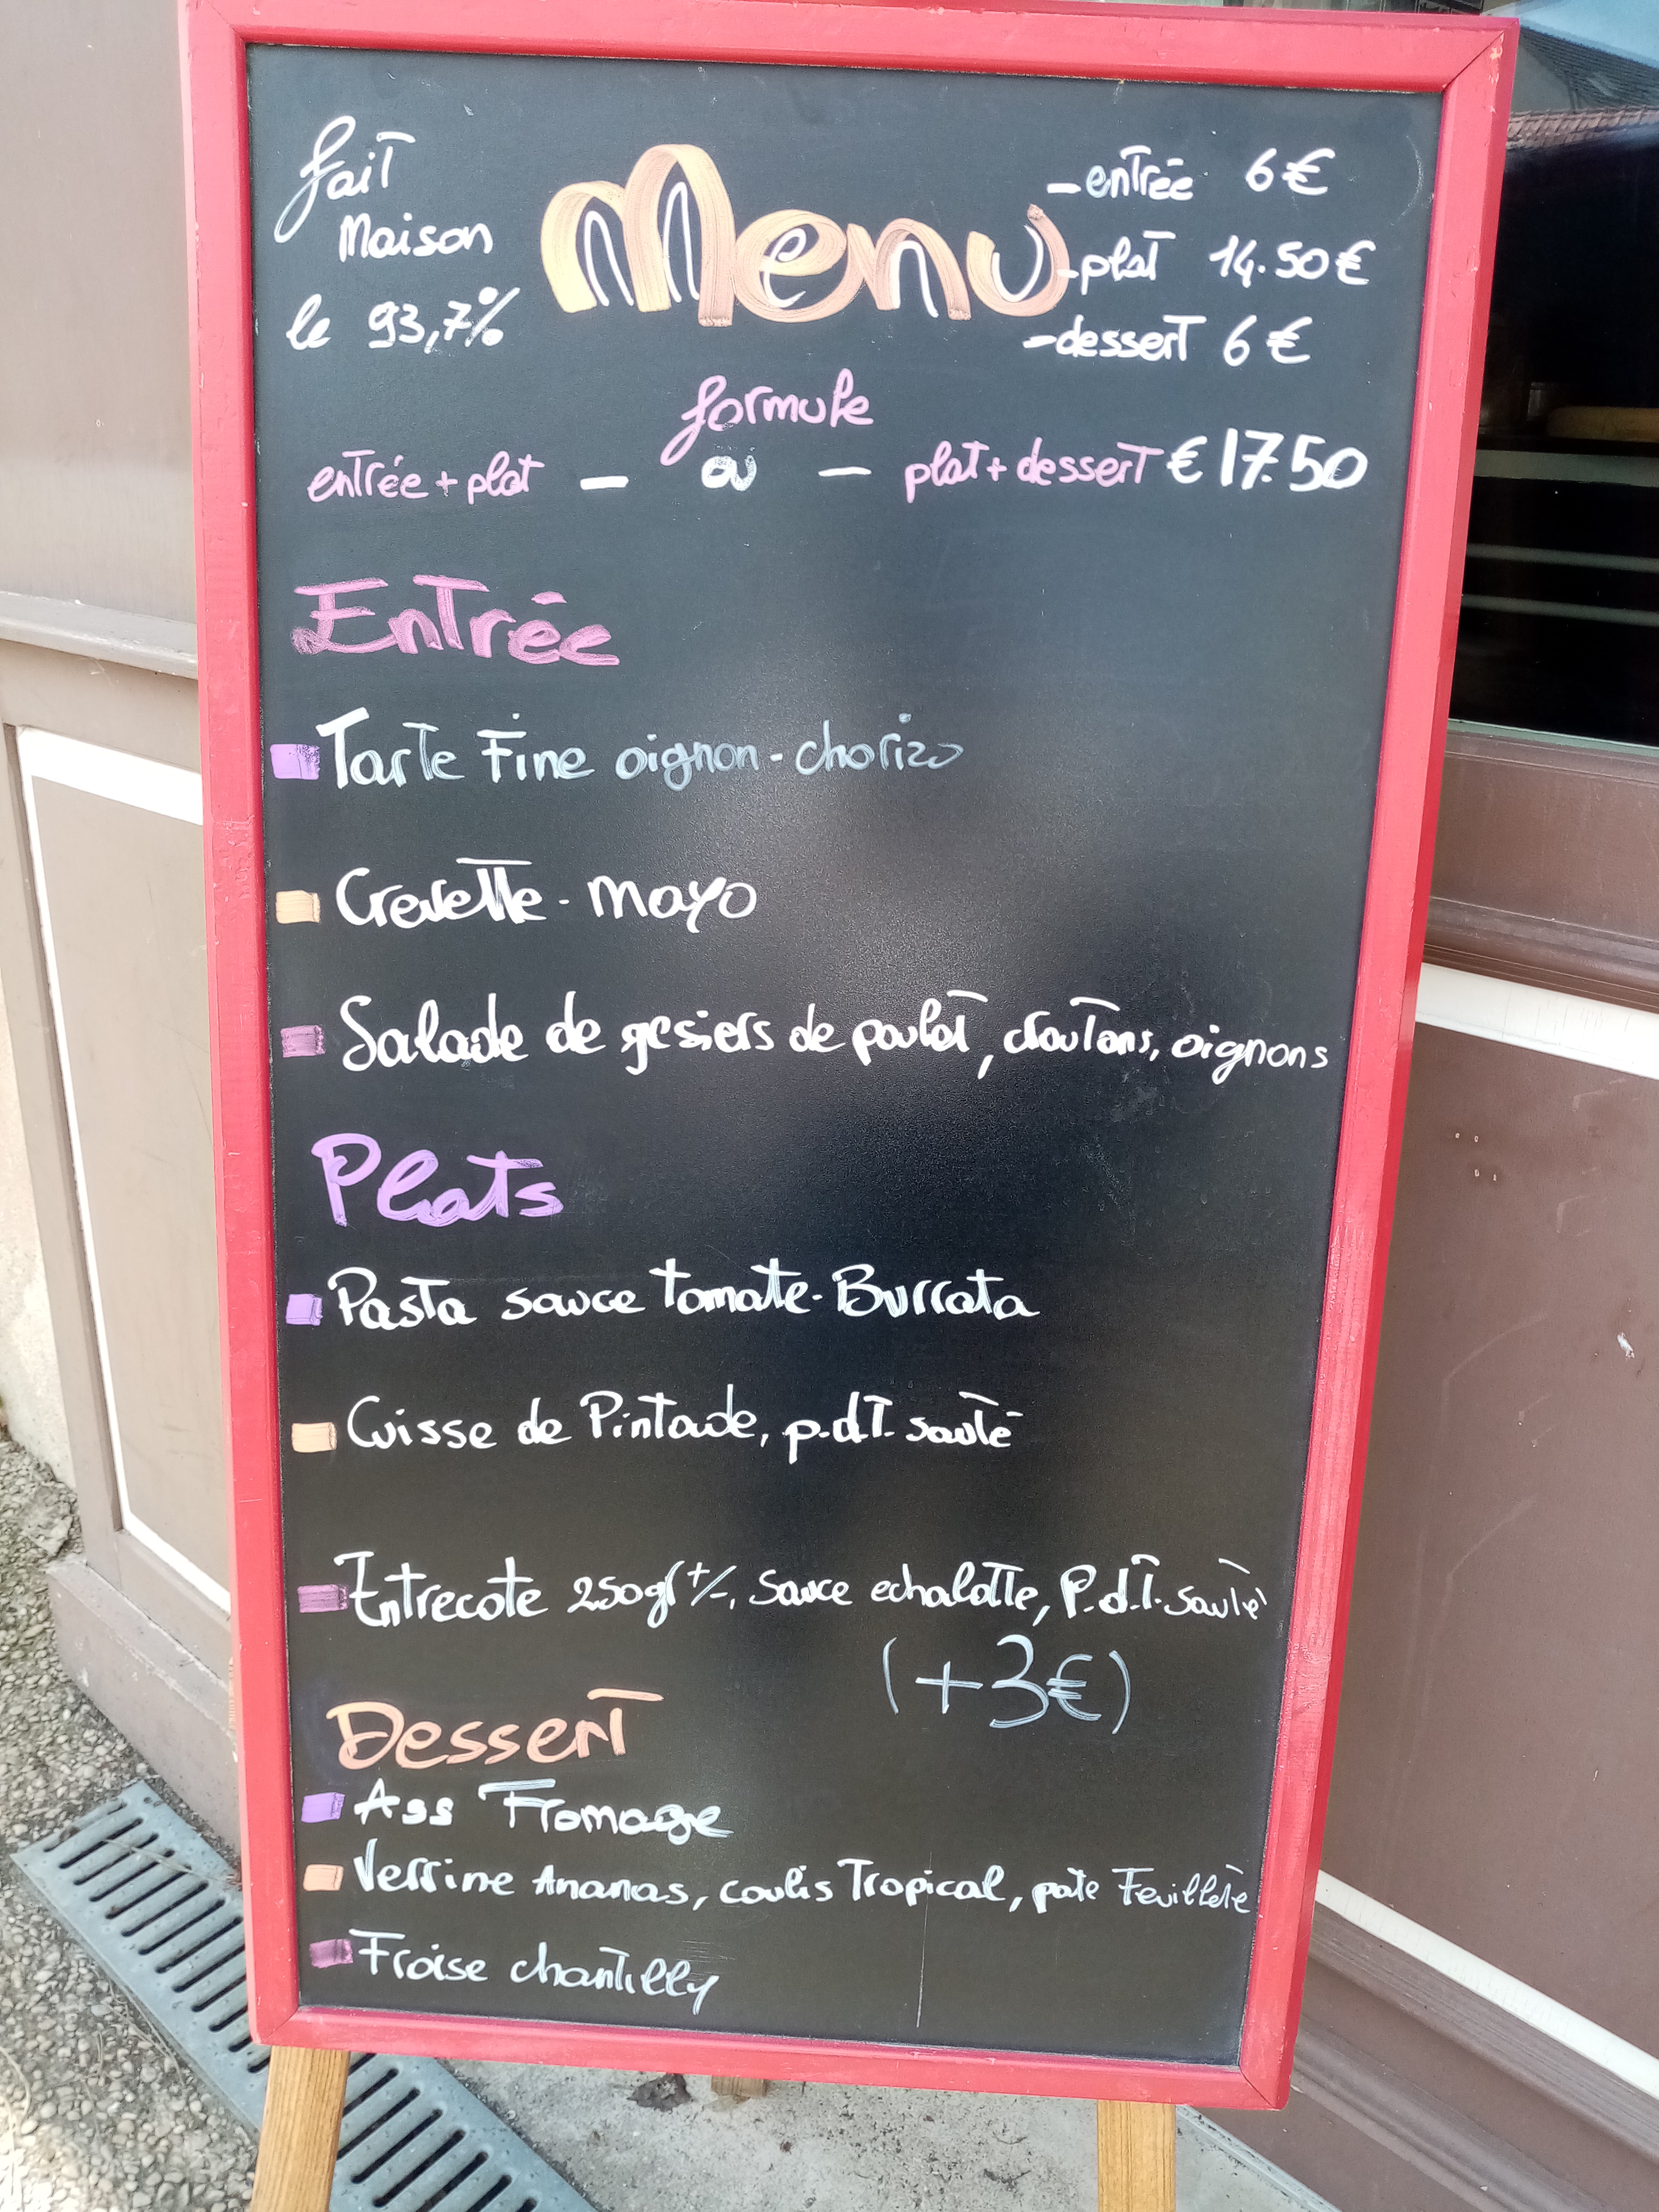 fait
Maison
le 93,7%
Menu
-entrée 6€
-plat 14.50€
-dessert 6€
formule
entrée+plat - ou - plat+dessert €17.50
Entrée
Tarte Fine oignon-chorizo
Crevette-mayo
Salade de gesiers de poulet, croutons, oignons
Plats
Pasta sauce tomate-Burrata
Cuisse de Pintade, p.d.T. sauté
Entrecote 250gr +/-, Sauce echalotte, P.d.T. sauté
(+3€)
Dessert
Ass Fromage
Verrine Ananas, coulis Tropical, pate Feuilleté
Fraise chantilly